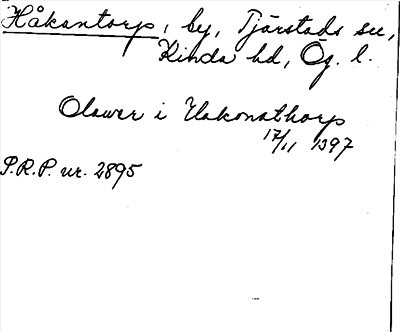 Håkantorp, by, Tjärstads sn,
Kinda hd, Ög. l.
Olawer i Hakonathorp
17/11 1397
P.R.P. nr. 2895